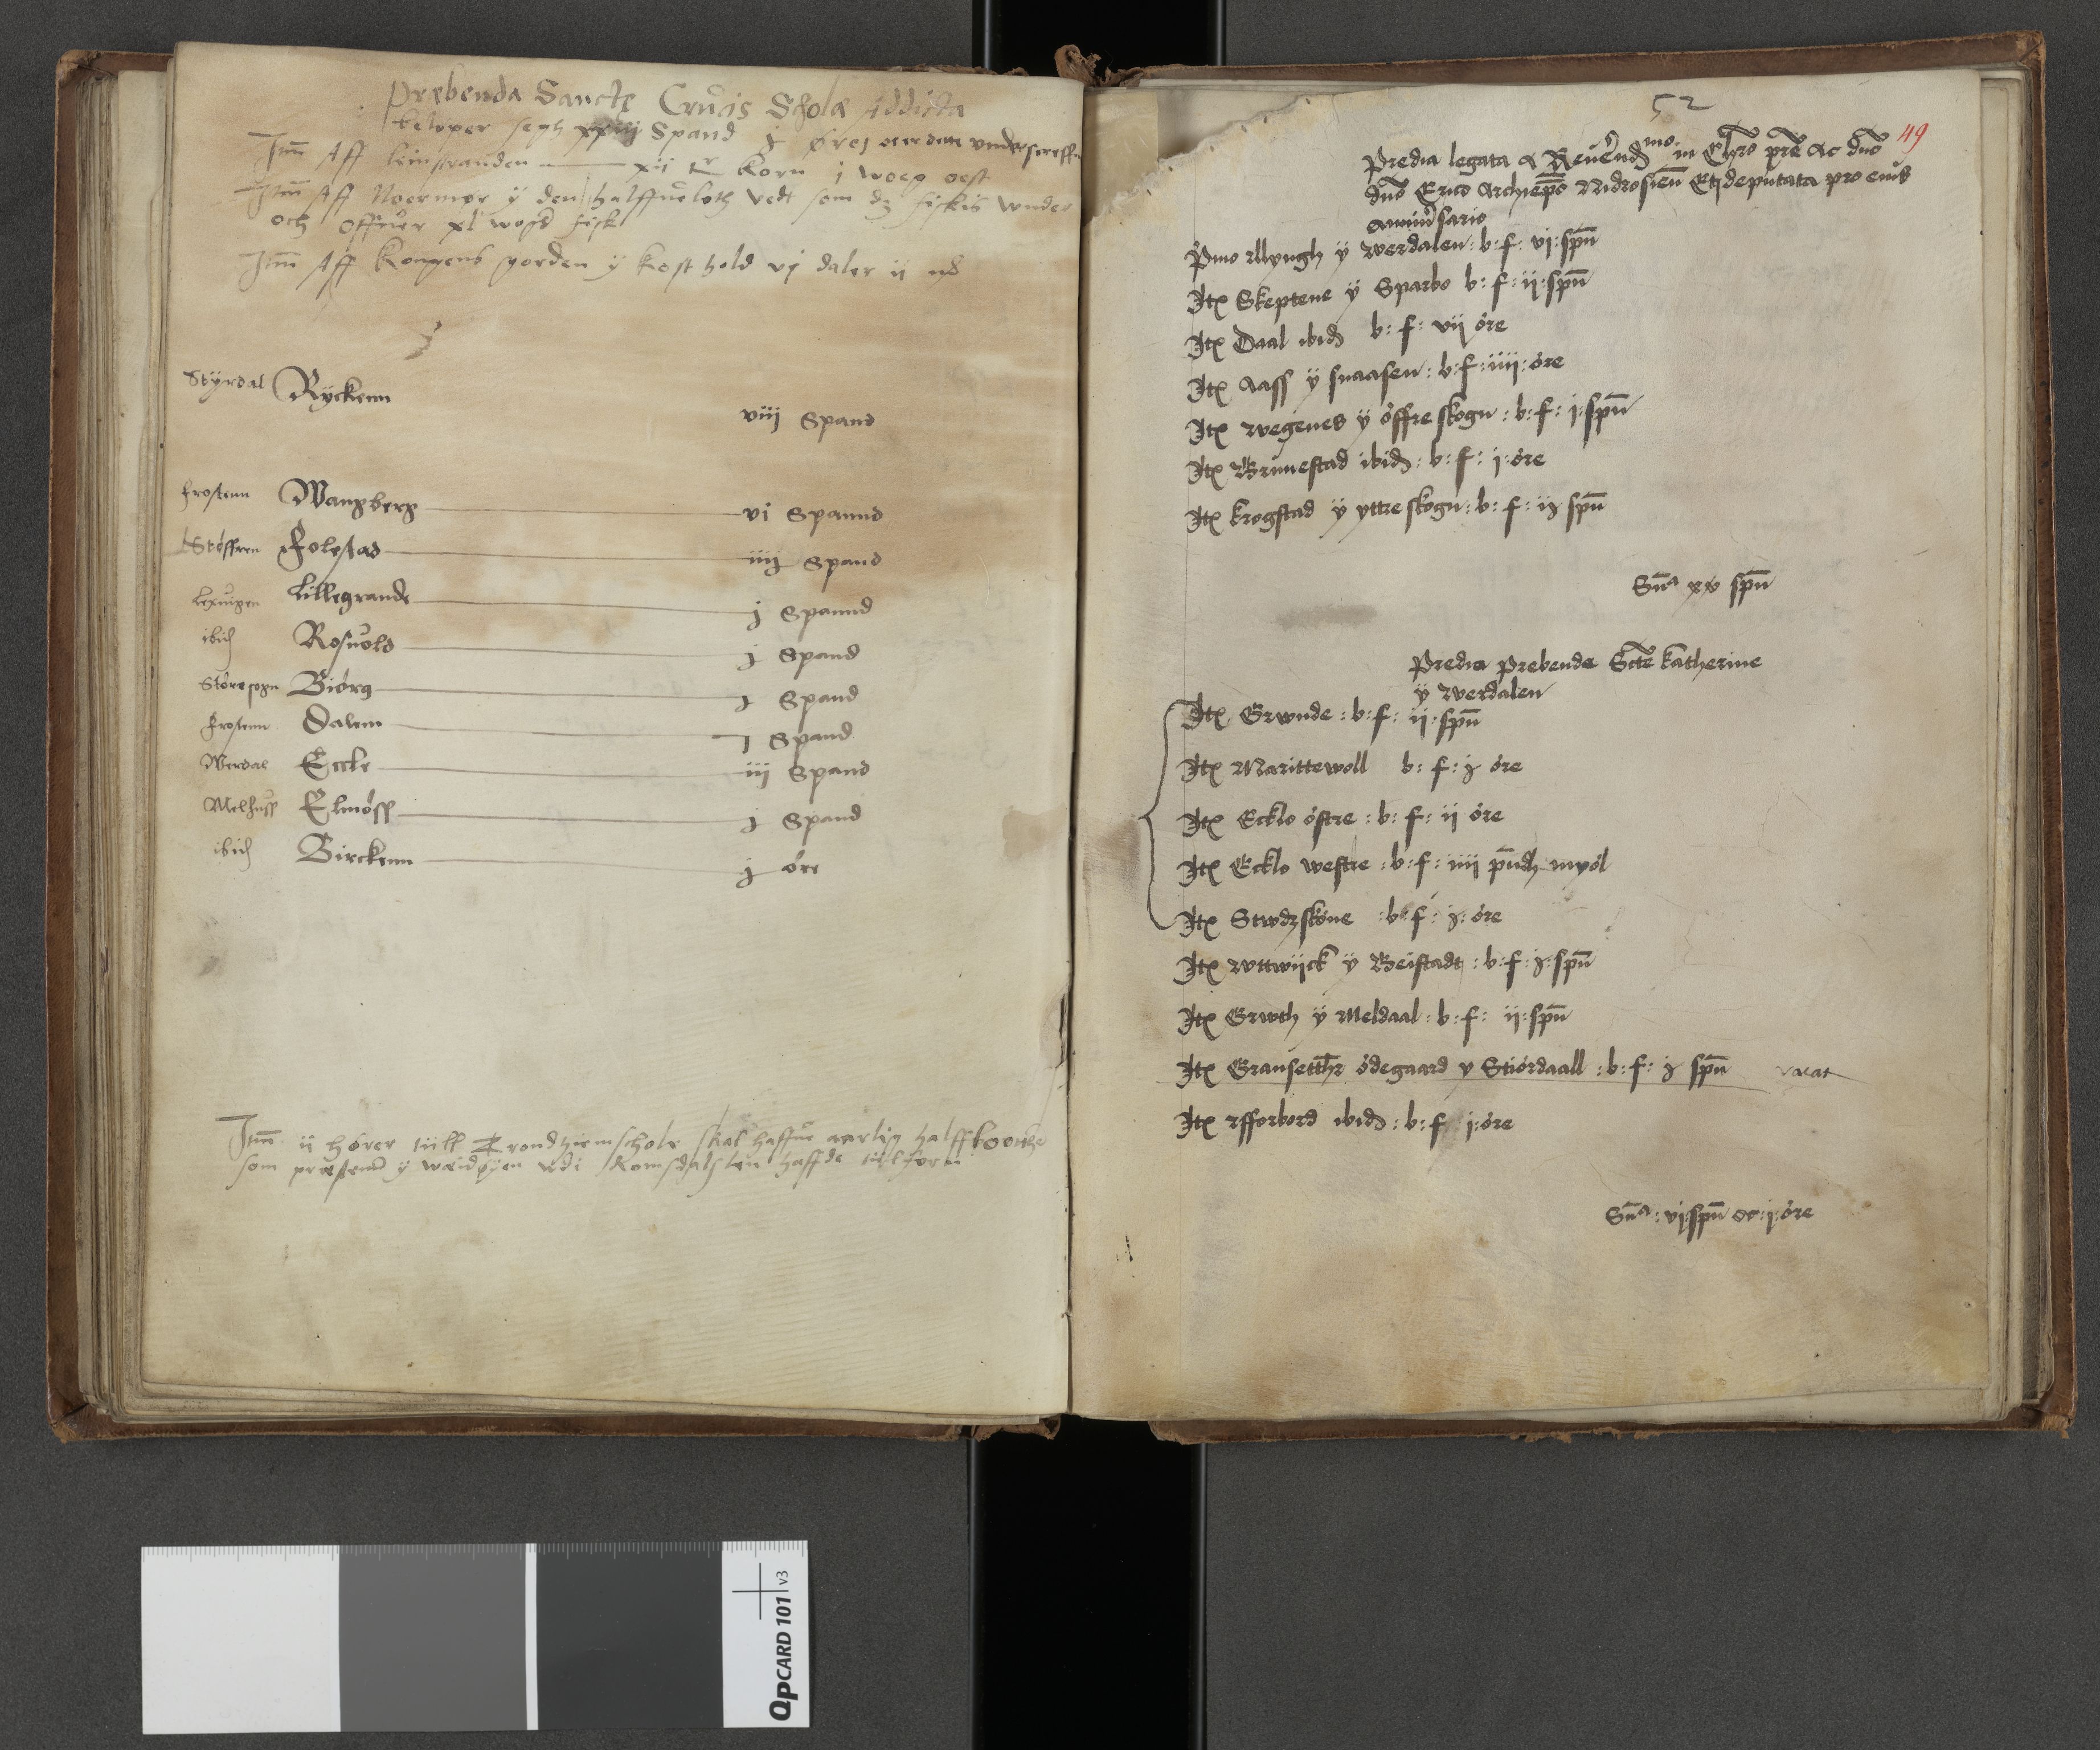 Præbenda Sancte Crucis Scholæ Addicta
beløper segh xxiiij Spand j øre oc er dette underscreffne
Itm Aff leinstranden xij Korn j woeg oest
Itm Aff Noermør ÿ den halffue loth vedt som dz fiskis vnder
och offuer xl woger fisk
Itm Aff Kongens gorden ÿ kost hold vj daler ij
Stÿrdal Rÿckenn viij Spand
frostenn Wangberg vi Spannd
Støffren Folestad iiij Spand
Lexuigen Lillegrande j Spannd
ibid Rosuold j Spand
Støresogn Biórg j Spand
frostenn Dalem j Spand
Werdal Eccle iij Spand
Melhuss Elmóss j Spand
ibid Birckenn j óre
Itm ij hører till Trondhiem schole skal haffue aarlig halff
som præstend ÿ wædøÿen vdi Romsdals len haffde til forn
52
49
Predia legata a Reuerendmo in Chro pre Ac dno
dno Erico Archiepo Nidrosien Et deputata pro eius
anniusario
Pmo Illyngh ÿ werdalen : b : f : vj : spn
Itx Skeptene ÿ Sparbo b : f : ij : spn
Itx Daal ibid b : f : vij óre
Itx Aass ÿ snaasen : b : f : iiij : óre
Itx wegenes ÿ óffre skogn : b : f : j : spn
Itx Brunestad ibid : b : f : j : óre
Itx krogstad ÿ yttre skogn : b : f : ij spn
Sua xv spn
Predia prebende Scte katherine
ÿ werdalen
Itx Grwnde : b : f : ij : spn
Itx Marittewoll b : f : j óre
Itx Ecklo óstre : b : f : ij óre
Itx Ecklo westre : b : f : iiij pundh myól
Itx Stwdzskóne : b : f : j : óre
Itx wttwijck ÿ Beistadt : b : f : j : spn
Itx Grwth ÿ Meldaal : b : f : ij : spn
Itx Gransetthr ódegaard y Stiórdaall : b : f : j spn vacat
Itx rfforbord ibid : b : f j : óre
Sua : vj : spn oc : j : óre
QPCARD 101 v3